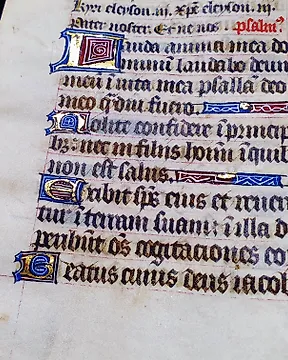 Kyrĩ eleyson. iij. Xp̃e eleyson. iij.
Pater noster. Et ne nos psalm̃
Lauda anima mea do
minum̃ laudabo deum
meu ĩ uita mea psallã deo
meo q̃diu fuero.
Nolite confidere ĩ princip
bȝ: nec in filiis hoĩm ĩ quib
non est salus.
Exibit sp̃s eius et reuer
tur ĩ terram suam: ĩ illa d
peribũt õs cogitaciones eo
Beatus cuius deus iacob